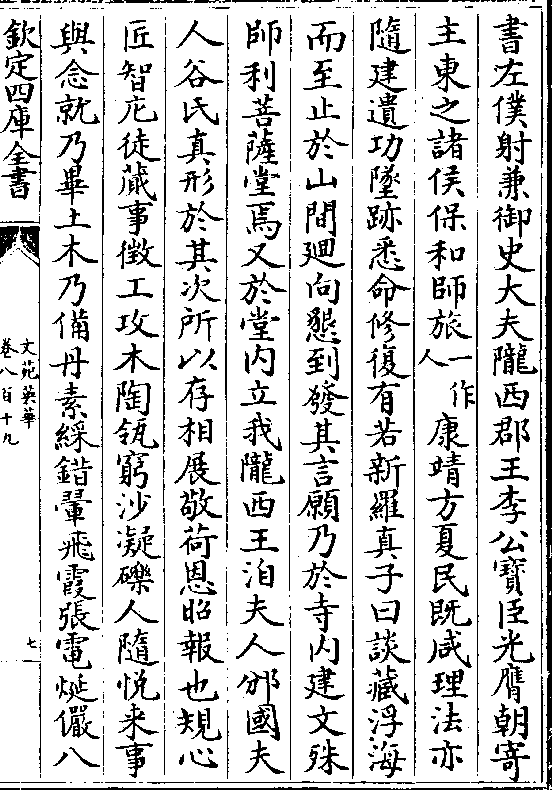 書左僕射兼御史大夫隴西郡王李公寶臣光膺朝寄
主東之諸侯保和師旅一作人康靖方夏民既咸理法亦
隨建遺功墜跡悉命修復有若新羅真子曰談藏浮海
而至止於山間廻向懇到發其言願乃於寺内建文殊
師利菩薩堂焉又於堂内立我隴西王洎夫人邠國夫
人谷氏真形於其次所以存相展敬荷恩昭報也規心
匠智庀徒蕆事徵工攻木陶瓴窮沙凝礫人隨悦来事
與念就乃畢土木乃備丹素綵錯翬飛霞張電烻儼八
欽定四庫全書
文苑英華
卷八百十九
七